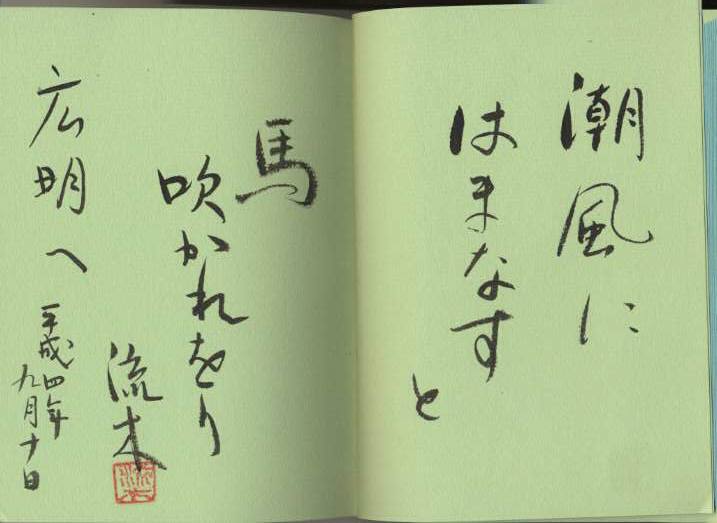 潮風に
はまなす
と
馬
吹かれをり
流木
広明へ
平成四年
九月十日